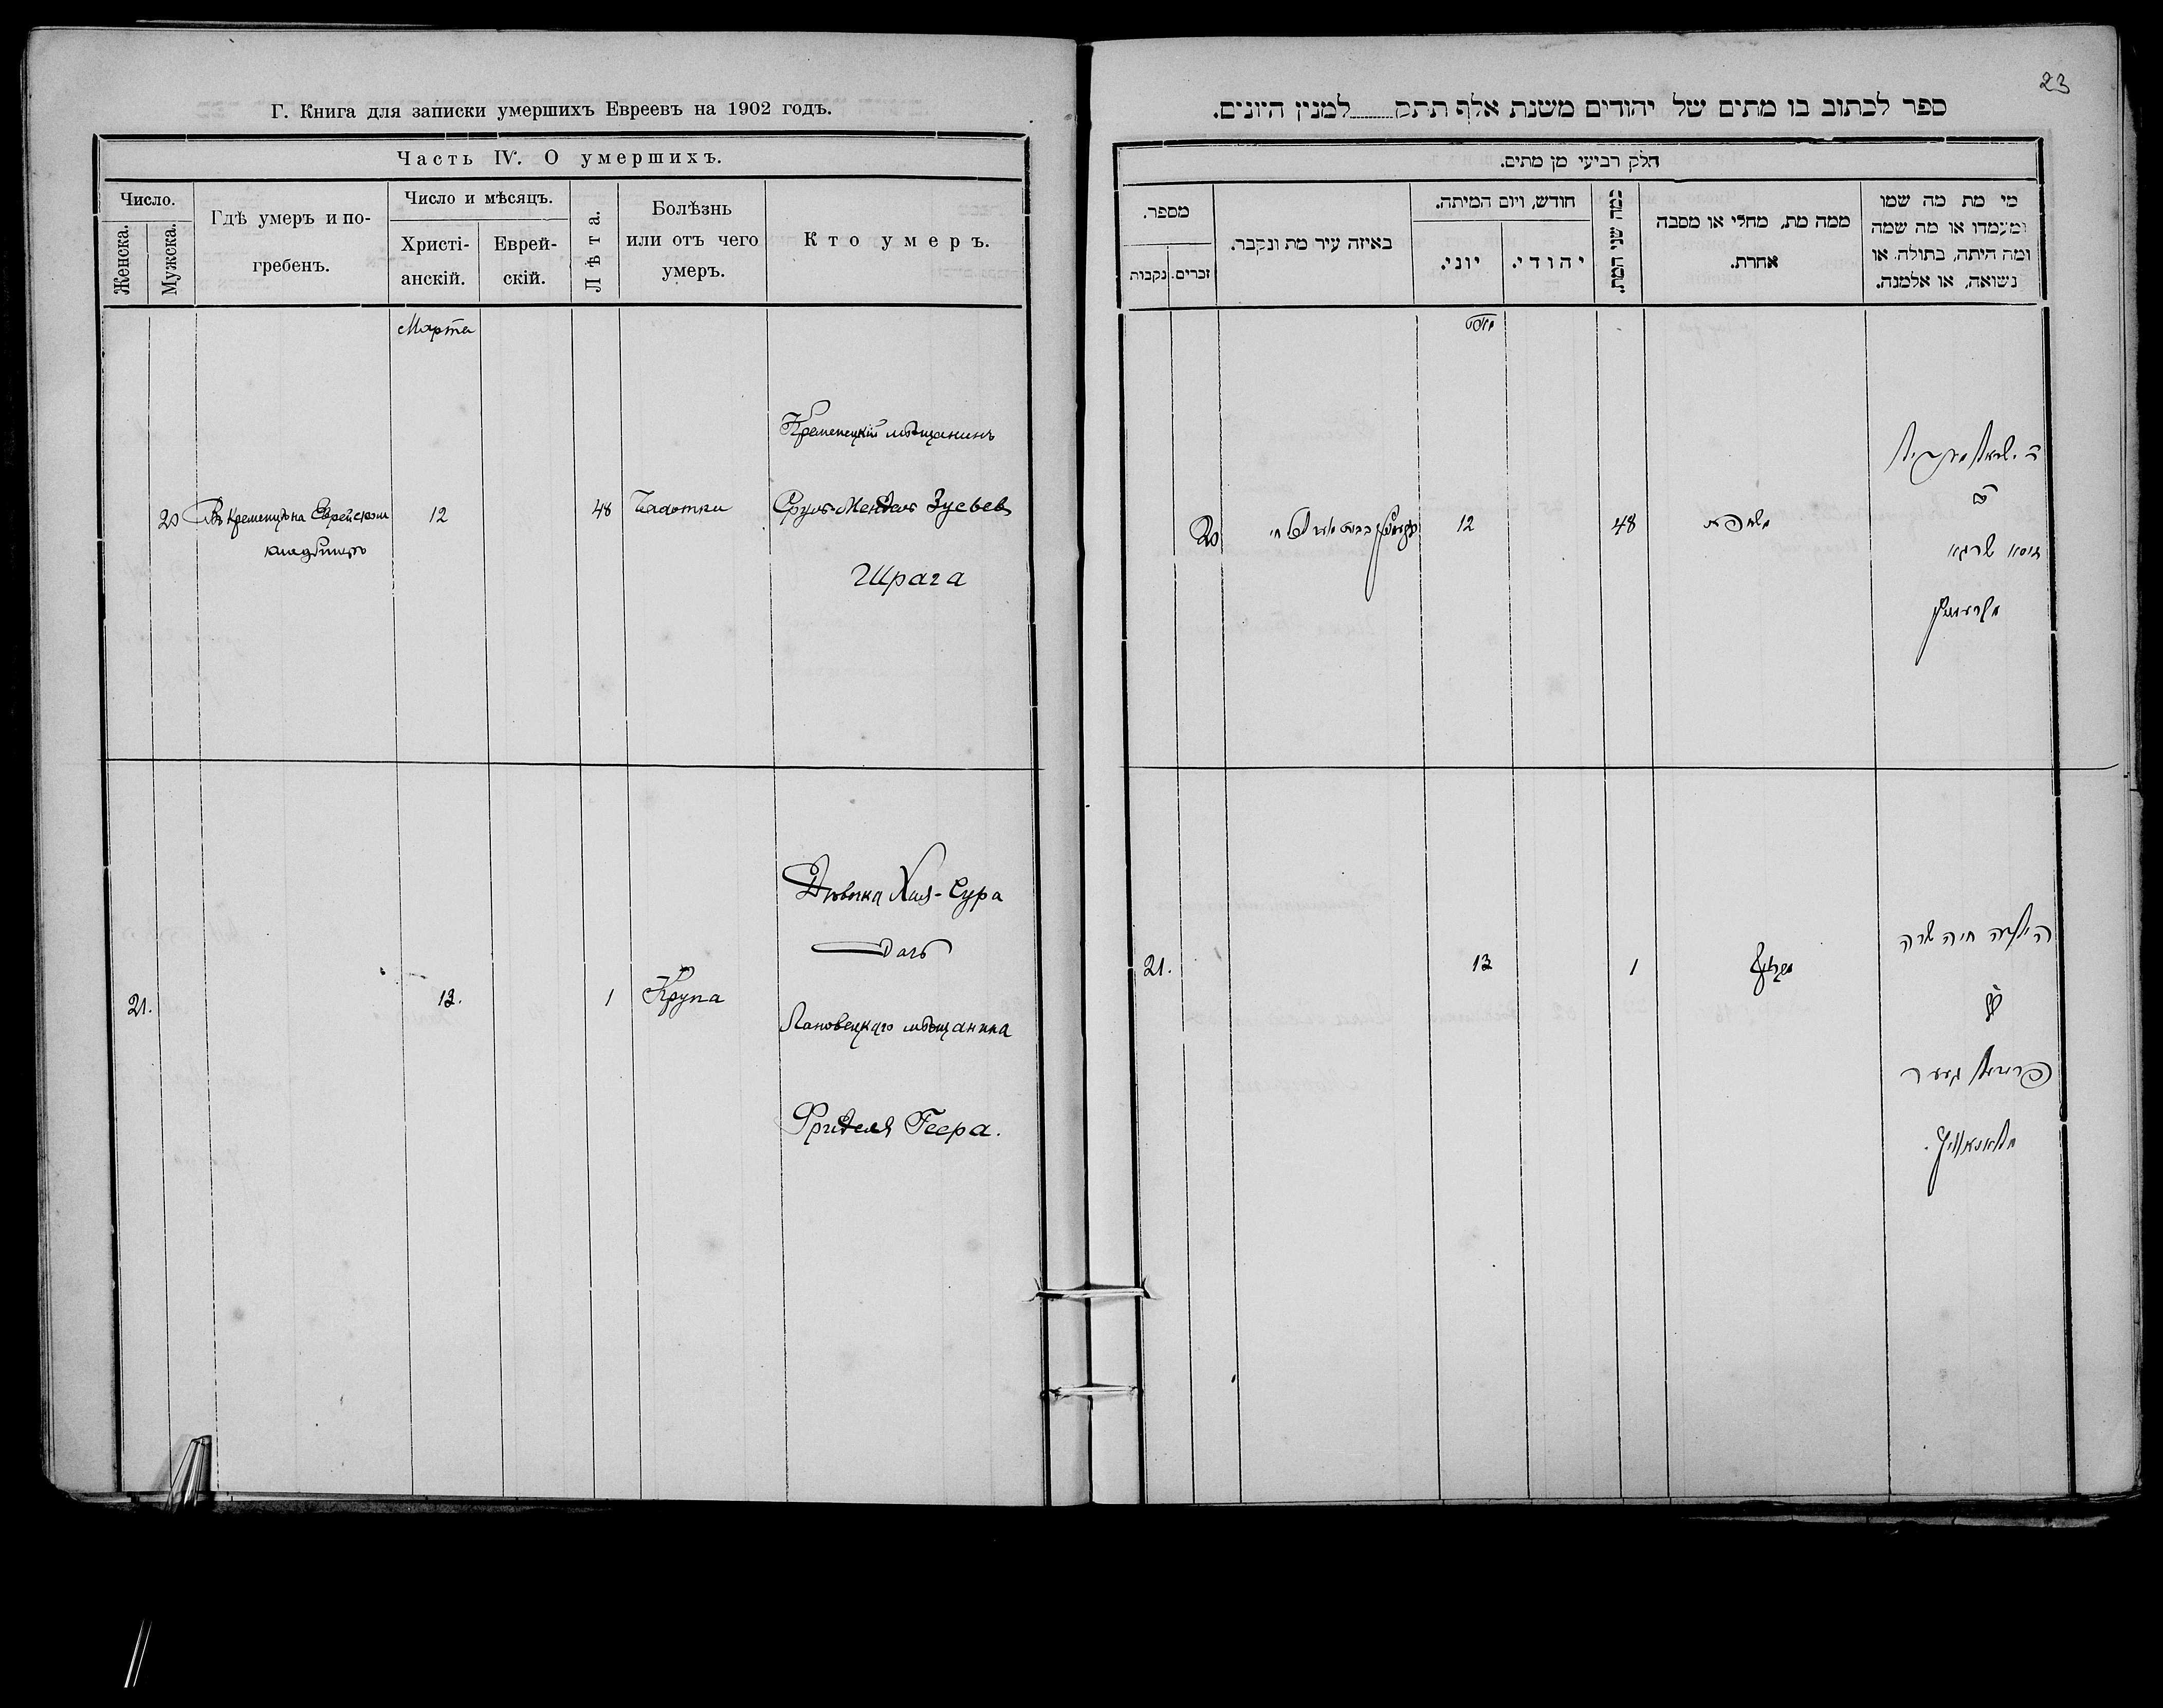 Г. Книга для записки умершихъ Евреевъ на 1902 годъ.
Часть IV. О умершихъ.
Число.
Женска.
Мужска.
Гдѣ умеръ и по-
гребенъ.
Число и мѣсяцъ.
Христі-
анскій.
Еврей-
скій.
Лѣта.
Болѣзнь
или отъ чего
умеръ.
Кто умеръ.
Марта
20
Въ Кременцѣ на Еврейском
кладбищѣ
12
48
Чахотки
Кременецкій мѣщанинъ
Сруль-Мендель Зусьевъ
Шрага
21.
13.
1
Крупа
Дѣвочка Хая-Сура
дочь
Лановецкаго мѣщанина
Фриделя Геера.
23
ספר לכתוב בו מתים של יהודים משנת אלף תתק למנין היונים.
חלק רביעי מן מתים.
מי מת מה שמו
ומעמדו או מה שמה
ומה היתה, בתולה או
נשואה, או אלמנה.
ממה מת, מחלי או מסבה
אחרת.
כמה שני המת.
חודש, ויום המיתה.
יהודי.
יוני.
באיזה עיר מת ונקבר.
מספר.
זכרים.
נקבות
זוסיא שרגא
48
12
20
הילדה חיה שרה
בת
פרידל געער
1
13
21.